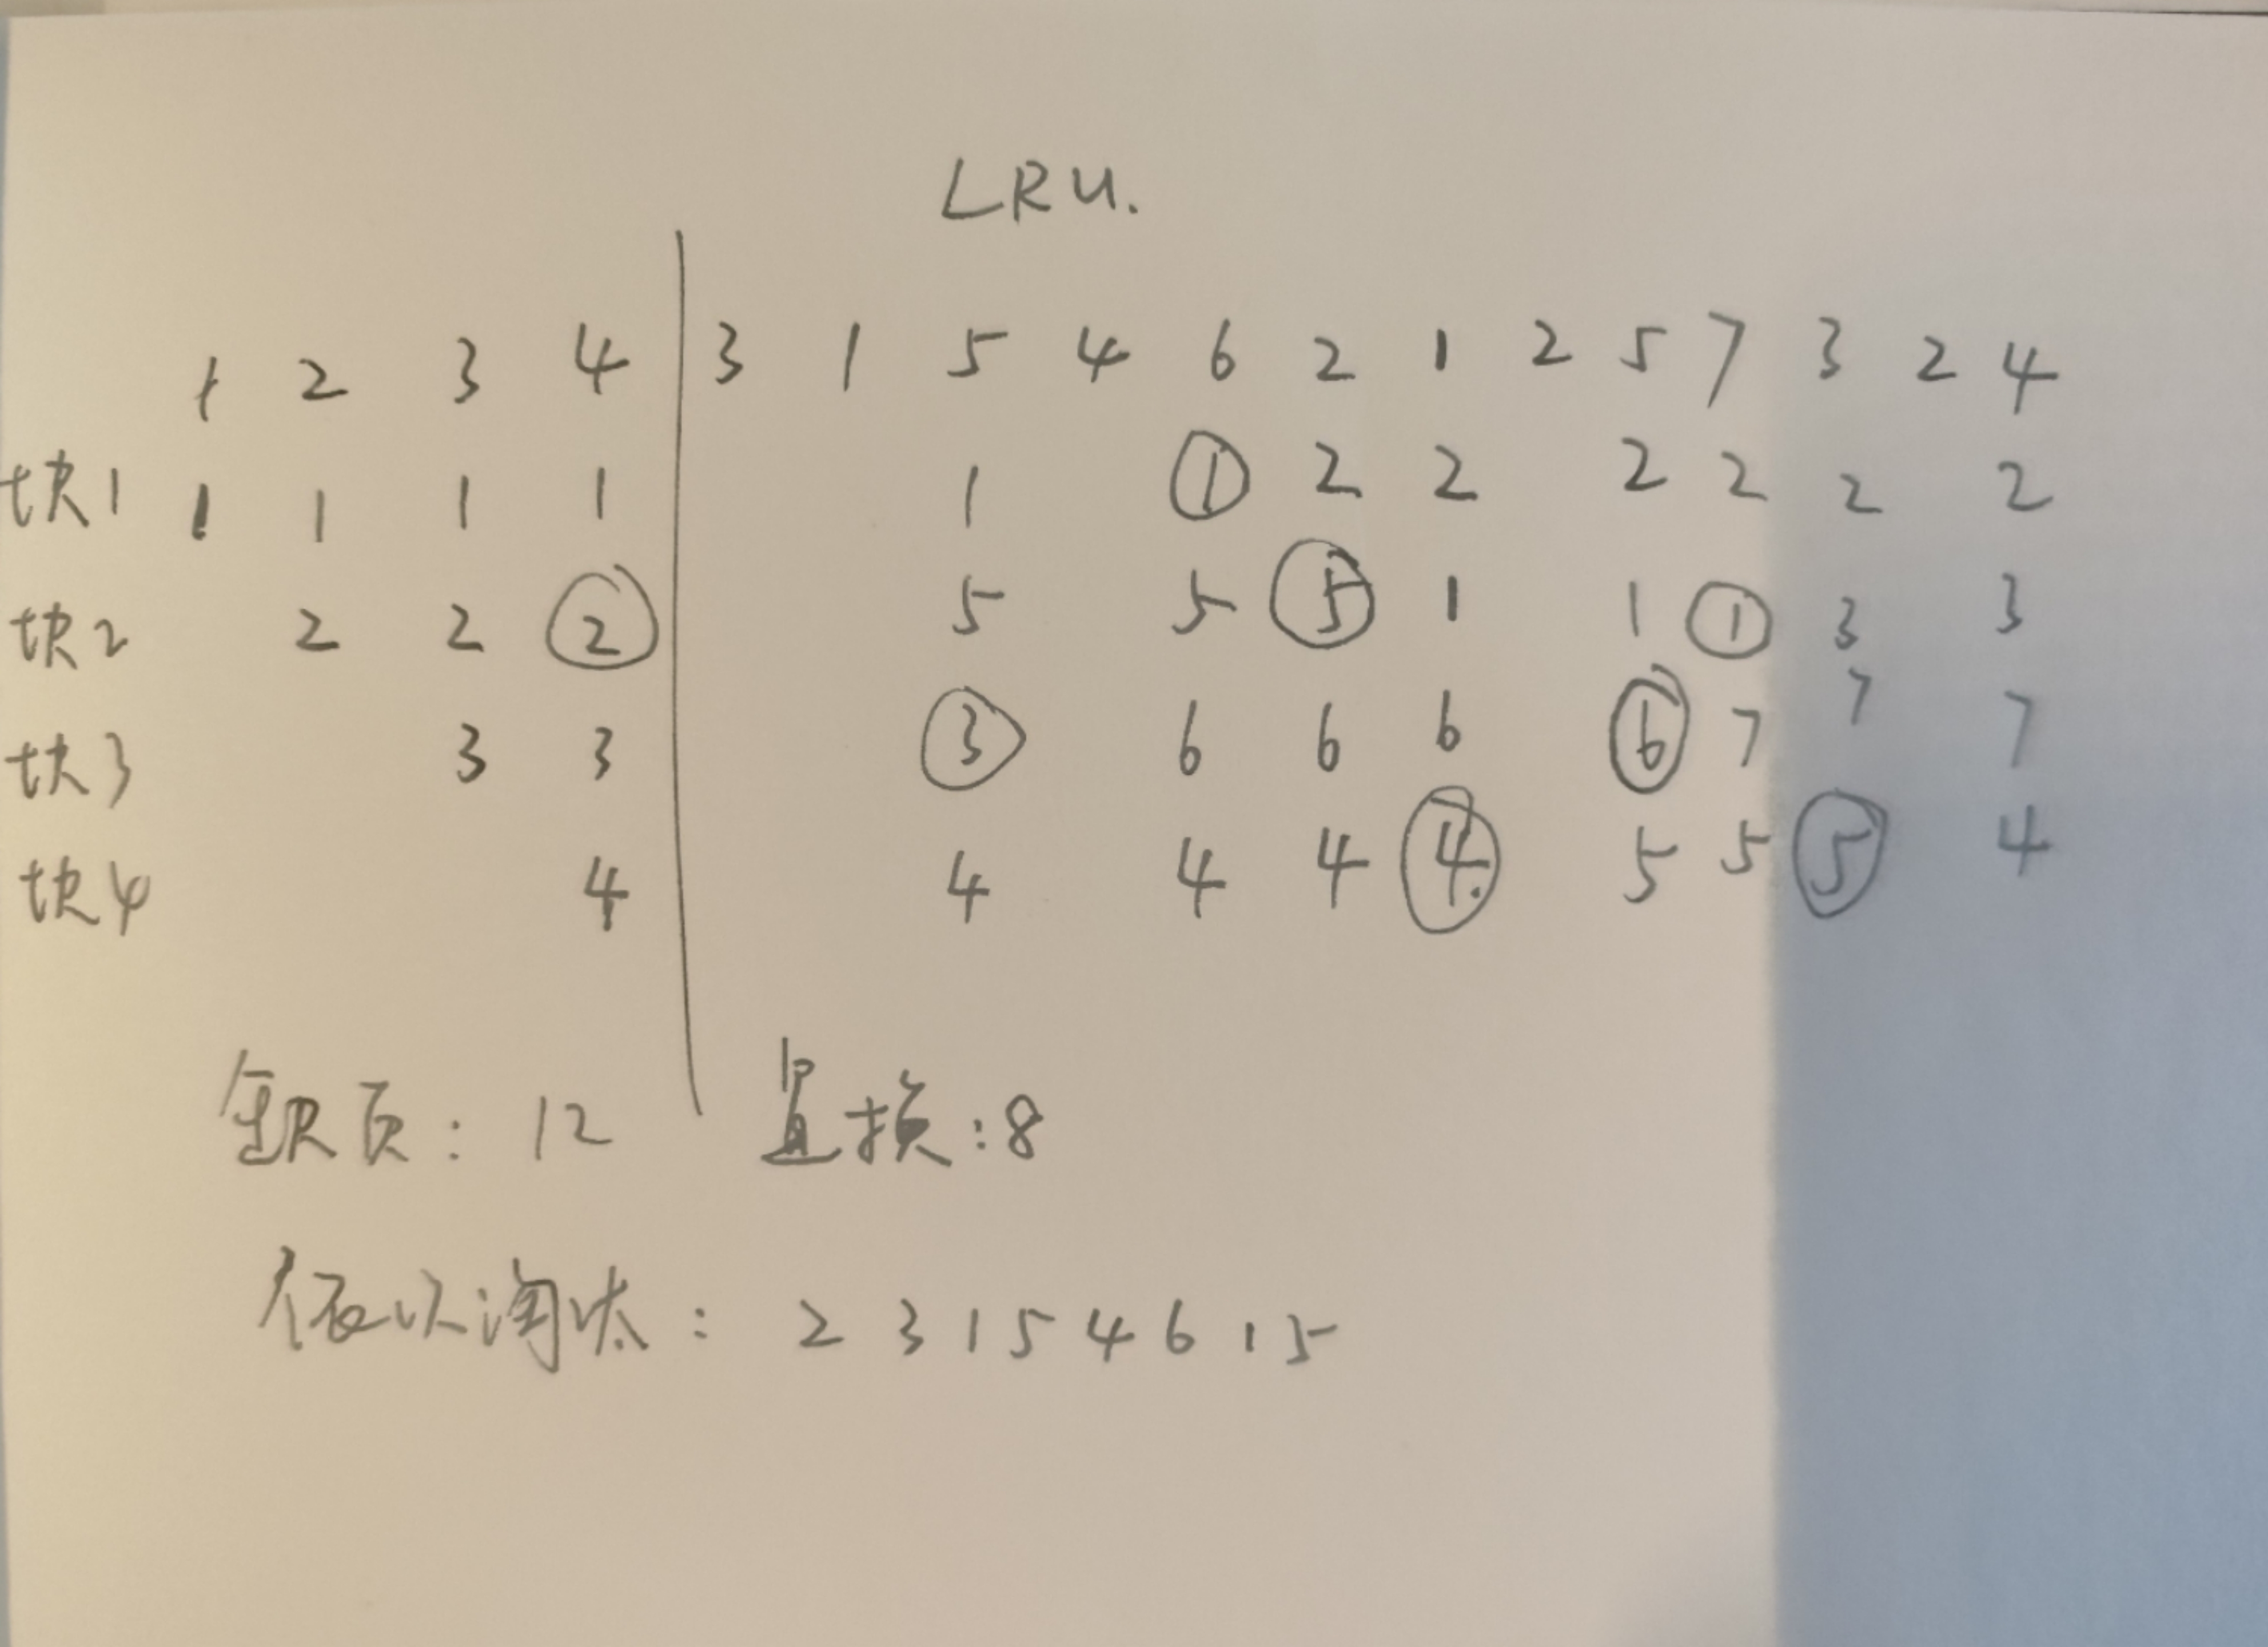 LRU.
1 2 3 4 3 1 5 4 6 2 1 2 5 7 3 2 4
块1 1 1 1 1 1 1 2 2 2 2 2 2
块2 2 2 2 5 5 5 1 1 1 3 3
块3 3 3 3 6 6 6 6 7 7 7
块4 4 4 4 4 4 5 5 5 4
缺页：12 置换：8
依次淘汰：2 3 1 5 4 6 1 5